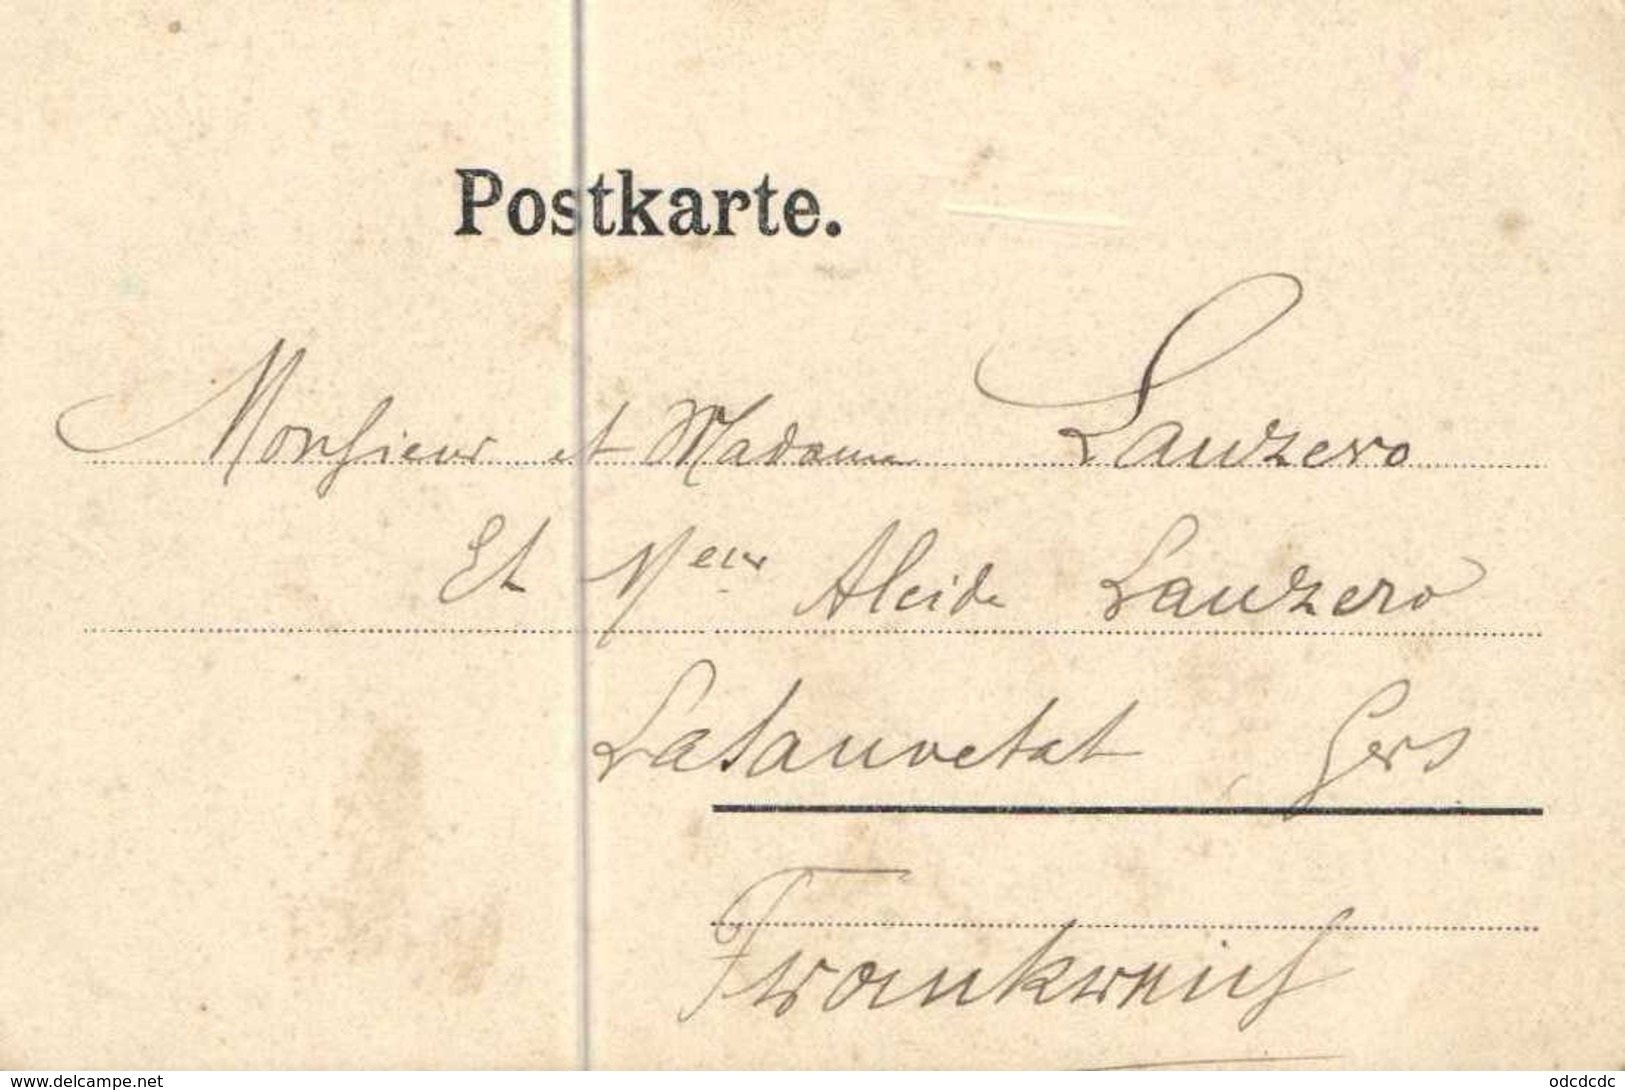 Postkarte.
Monsieur et Madame Lauzero
Et Meur Alcide Lauzero
Lasauvetat, Gers
Frankreich
www.delcampe.net
odcdcdc